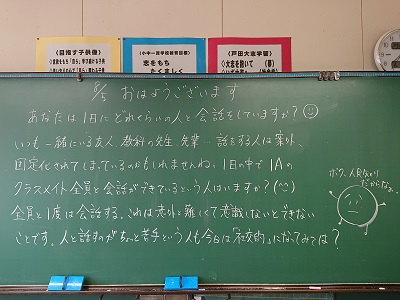 《目指す子供像》
《小中一貫学校教育目標》
志をもち
たくましく
《戸田大志学習》
◇大志を抱いて
8/5 おはようございます
あなたは1日にどれくらいの人と会話をしていますか?
いつも一緒にいる友人、教科の先生、先輩…話をする人は案外、
固定化されてしまっているのかもしれませんね。1日の中で1Aの
クラスメイト全員と会話ができているという人はいますか?
全員と1度は会話する。これは意外と難しくて意識しないとできない
ことです。人と話すのがちょっと苦手という人も今日は「社交的」になってみては?
ボク、人見知り
だからなぁ。